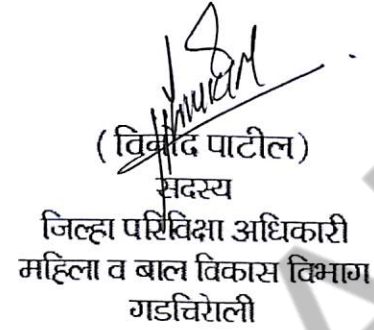 ( विनोद पाटील)
सदस्य
जिल्हा परिविक्षा अधिकारी
महिला व बाल विकास विभाग
गडचिरोली